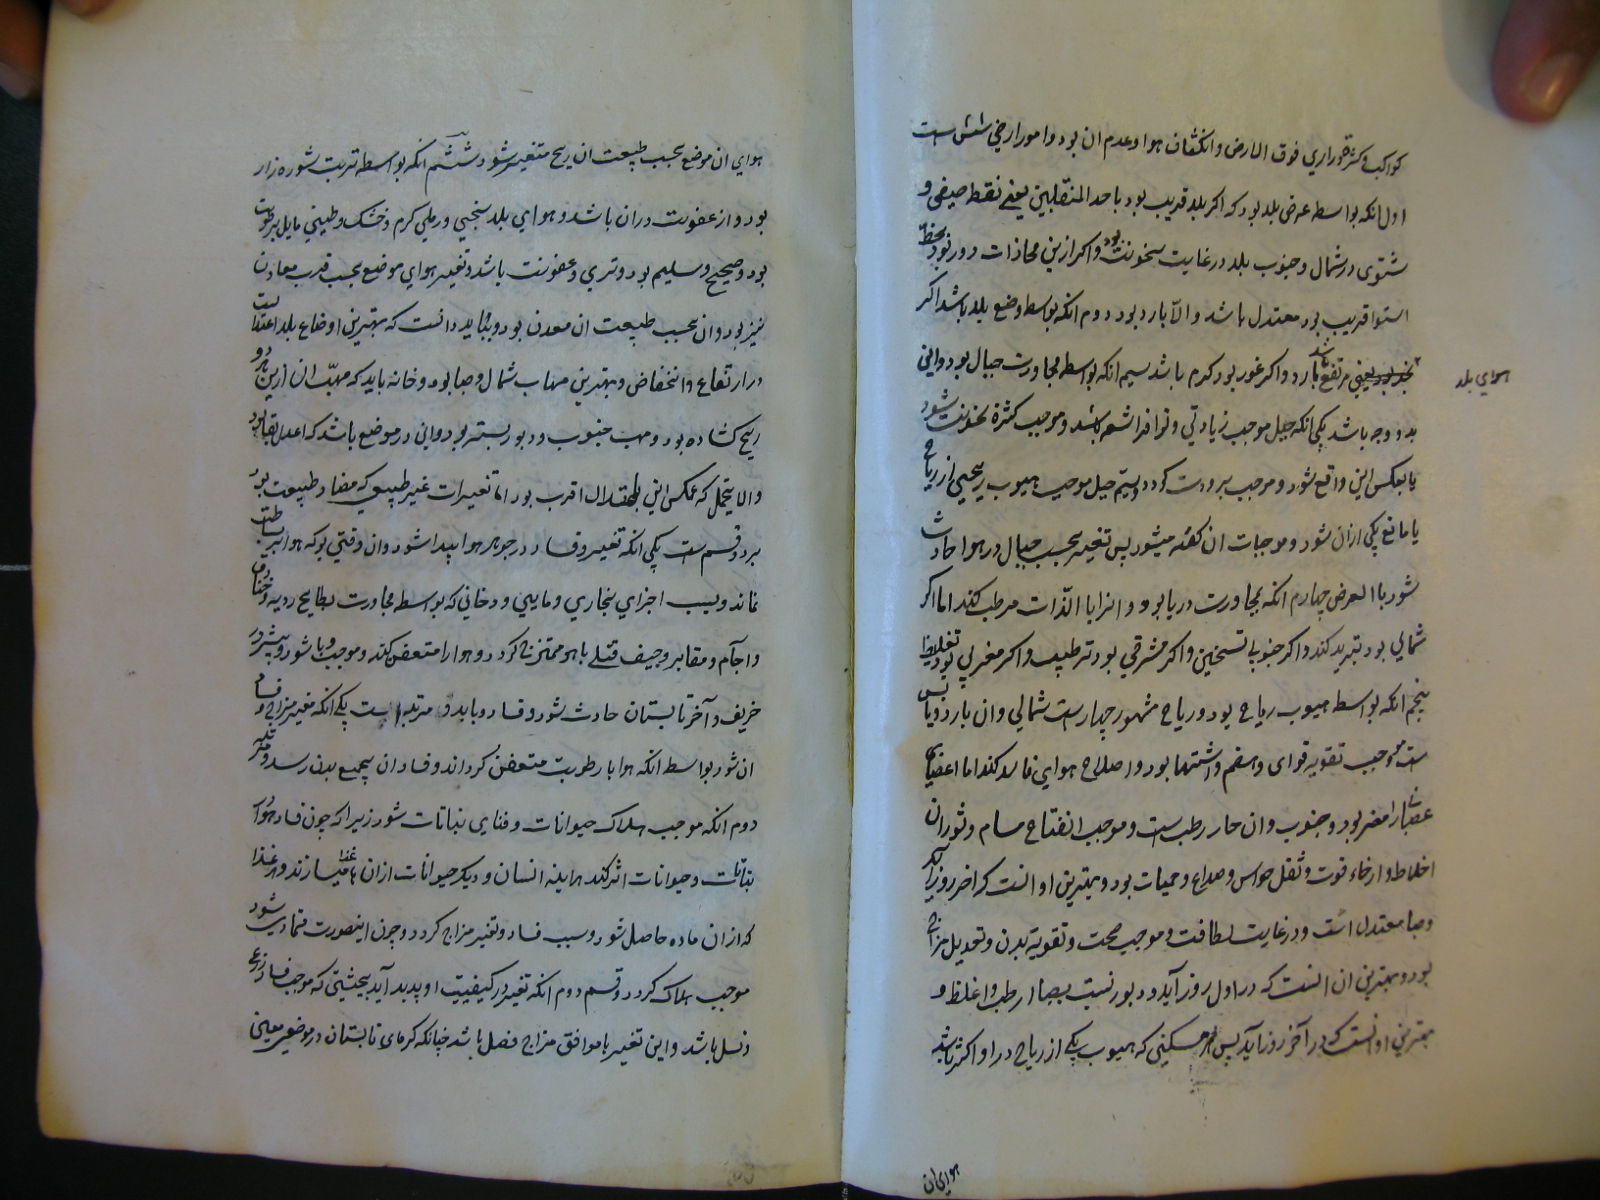 کواکب و کثرة دراری فوق الارض و انکشاف هوا و عدم ان بود و امور ارضی شش است
اول انکه بواسطه عرض بلد بود که اکر بلد قریب بود باحد المنقلبین یعنی نقطه صیفی و
شتوی در شمال و جنوب بلد در غایت سخونت بود و اکر ازین محاذات دور بود و بخط
استوا قریب بود معتدل باشد و الا بارد بود دوم انکه بواسطه وضع بلد باشد اکر
یعنی مرتفع باشد بارد و اکر غور بود کرم باشد سیم انکه بواسطه مجاورت جبال بود و این
هوای بلد
بدو وجه باشد یکی انکه جبل موجب زیادتی و توافر اشعه باشد و موجب کثرة سخونت شود
یا بعکس این واقع شود و موجب برودت کردد دویم جبل موجب هبوب ریحی از ریاح
یا مانع یکی ازان شود و موجبات ان کفته میشود پس تغیر بحسب جبال در هوا حادث
شود با العرض چهارم انکه بمجاورت دریا بود و انرا بالذات مرطب کند اما اکر
شمالی بود تبرید کند و اکر جنوبی تسخین و اکر مشرقی بود ترطیب و اکر مغربی بود تغلیظ
پنجم انکه بواسطه هبوب ریاح بود و ریاح مشهور چهار است شمالی و ان بارد و یابس
است موجب تقویه قوای و هضم و اشتها بود و اصلاح هوای فاسد کند اما اعضای
عصبانی را مضر بود و جنوب و ان حار رطب است و موجب انفتاح مسام و ثوران
اخلاط و ارخاء قوت و ثقل حواس و صداع و حمیات بود و بهترین او انست که اخر روز آید
و صبا معتدل است و در غایت لطافت و موجب صحت و تقویة بدن و تعدیل مزاج
بود و بهترین ان انست که در اول روز آید و دبور نسبت بصبا ارطب و اغلظ و
بهترین او انست که در آخر روز آید پس هر مسکنی که هبوب یکی از ریاح در او اکثر باشد
هوای ان
هوای ان موضع بحسب طبیعت ان ریح متغیر شود ششم انکه بواسطه تربت شوره زار
بود و از عفونت دران باشد و هوای بلد سنجی و رملی کرم و خشک و طینی مایل برطوبت
بود و صحیح و سلیم بود و تری و عفونت باشد و تغیر هوای موضع بحسب قرب معادن
نیز بود و ان بحسب طبیعت ان معدن بود و بباید دانست که بهترین اوضاع بلد اعتدالست
در ارتفاع و انخفاض و بهترین مهاب شمال و صبا بود و خانه باید که مهب ان ازین هر دو
ریح کشاده بود و مهب جنوب و دبور بسته بود و این در موضع باشد که اعدل بقاع بود
و الا یحتمل که عکس این باعتدال اقرب بود اما تغیرات غیر طبیعی که مضاد طبیعت بود
بر دو قسم ست یکی انکه تغیر و فساد در جوهر هوا پیدا شود و ان وقتی بود که هوا بر بساطت
نماند و بسبب اجزای بخاری و مایی و دخانی که بواسطه مجاورت بطایح ردیه و خنادق
و اجام و مقابر و جیف قتلی با هوا ممتزج کردد و هوا را متعفن کند و موجب وبا شود و بیشتر در
خریف و آخر تابستان حادث شود و فساد وبا بدو مرتبه است یکی انکه مغیر مزاج و فساد
ان شود بواسطه انکه هوا با رطوبت متعفن کرداند و فساد ان بجمیع بدن رسد و مرتبه
دوم انکه موجب هلاک حیوانات و فنای نباتات شود زیرا که چون فساد هوا در
نباتات و حیوانات اثر کند هر اینه انسان و دیکر حیوانات ازان غذا میسازند و هر غذا
که ازان ماده حاصل شود و سبب فساد و تغیر مزاج کردد و چون اینصورت متمادی شود
موجب هلاک کردد و قسم دوم انکه تغیر در کیفیت او پدید آید بحیثیتی که موجب فساد زرع
و نسل باشد و این تغیر یا موافق مزاج فصل باشد چنانکه کرمای تابستان در موضعی معین